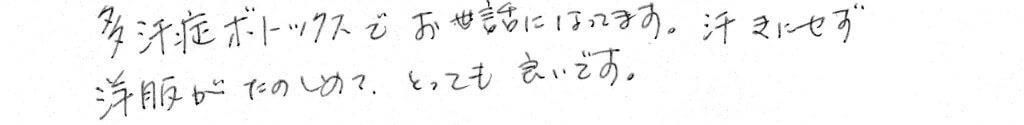 多汗症ボトックスでお世話になってます。汗きにせず
洋服がたのしめて、とっても良いです。